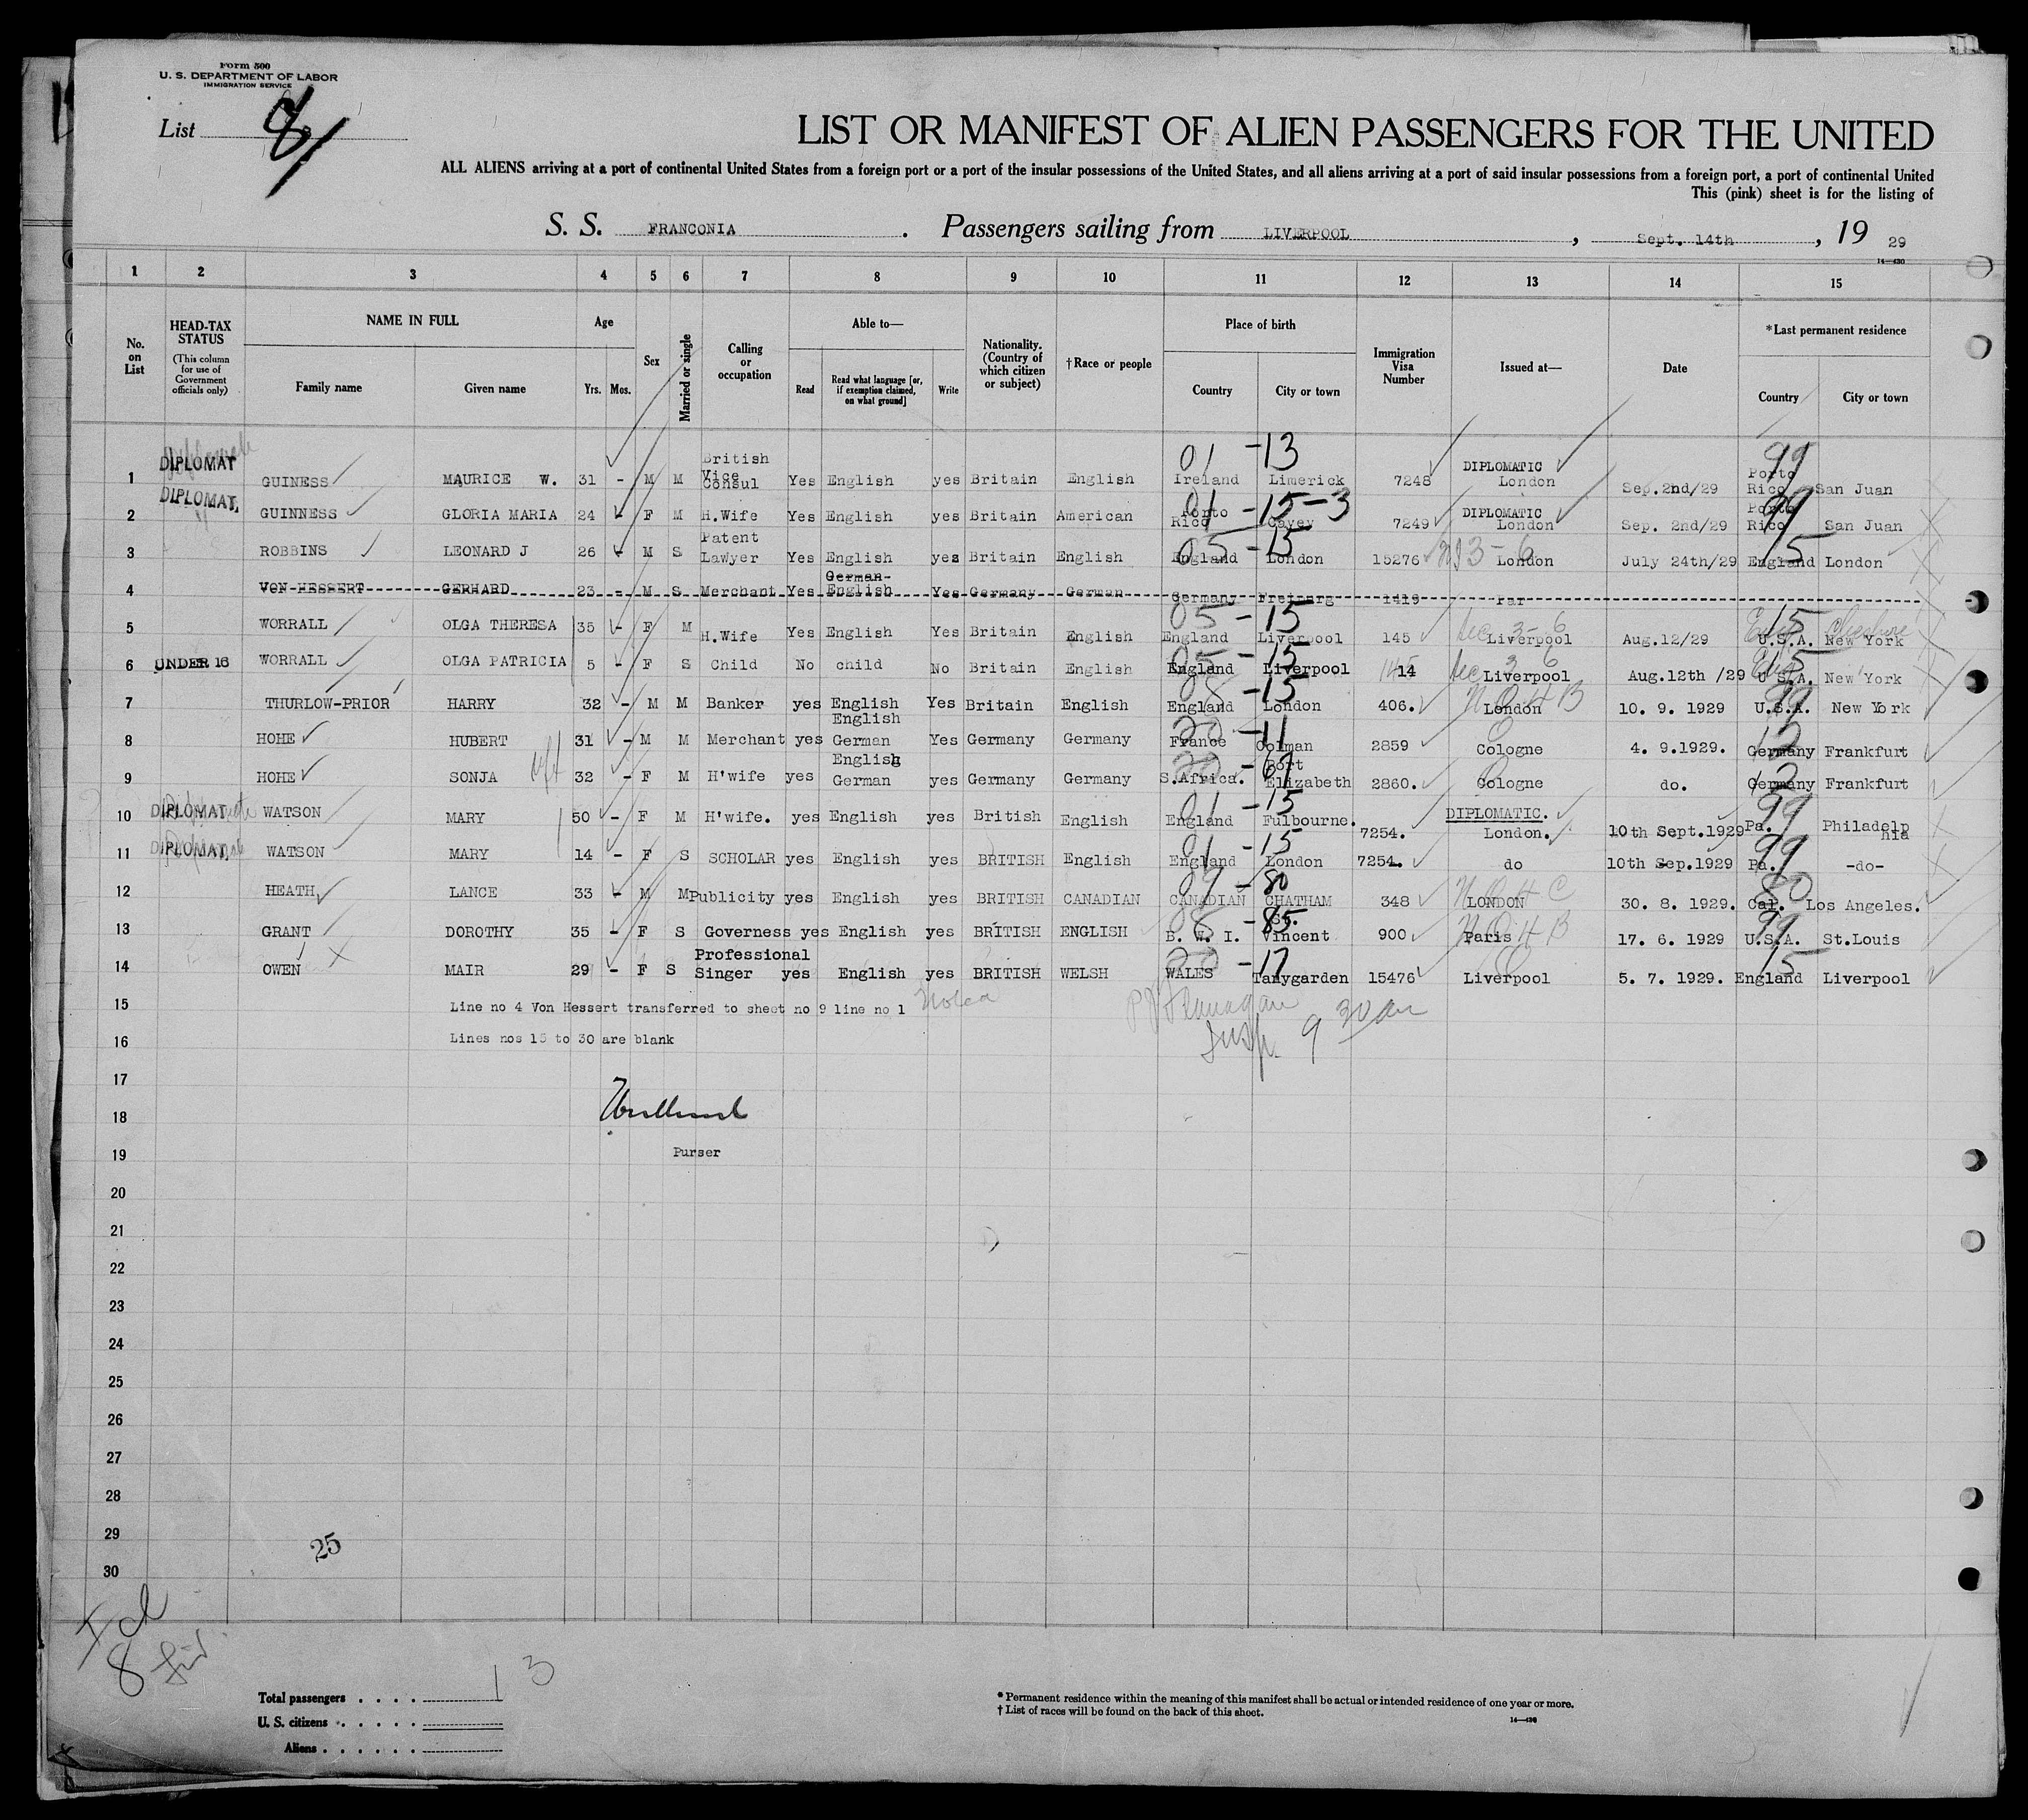 Form 500
U. S. DEPARTMENT OF LABOR
IMMIGRATION SERVICE
List 8
LIST OR MANIFEST OF ALIEN PASSENGERS FOR THE UNITED
ALL ALIENS arriving at a port of continental United States from a foreign port or a port of the insular possessions of the United States, and all aliens arriving at a port of said insular possessions from a foreign port, a port of continental United
This (pink) sheet is for the listing of
S. S. FRANCONIA . Passengers sailing from LIVERPOOL , Sept. 14th , 19 29
14—430
1 2 3 4 5 6 7 8 9 10 11 12 13 14 15
No. on List
HEAD-TAX STATUS (This column for use of Government officials only)
NAME IN FULL
Family name Given name
Age
Yrs. Mos.
Sex
Married or single
Calling or occupation
Able to—
Read Read what language [or, if exemption claimed, on what ground] Write
Nationality. (Country of which citizen or subject)
†Race or people
Place of birth
Country City or town
Immigration Visa Number
Issued at—
Date
*Last permanent residence
Country City or town
1 DIPLOMAT GUINESS MAURICE W. 31 - M M British Vice Consul Yes English yes Britain English 01 -13 Ireland Limerick 7248 DIPLOMATIC London Sep.2nd/29 99 Porto Rico San Juan
2 DIPLOMAT. GUINNESS GLORIA MARIA 24 - F M H.Wife Yes English yes Britain American 01 -15-3 Porto Rico Cayey 7249 DIPLOMATIC London Sep. 2nd/29 99 Porto Rico San Juan
3 ROBBINS LEONARD J 26 - M S Patent Lawyer Yes English yes Britain English 05 -15 England London 15276 3-6 London July 24th/29 15 England London
4 VON-HESSERT GERHARD 23 - M S Merchant Yes German- English Yes Germany German Germany Freiburg 1419 Par
5 WORRALL OLGA THERESA 35 - F M H.Wife Yes English Yes Britain English 05 -15 England Liverpool 145 3-6 Liverpool Aug.12/29 15 Eng Cheshire U.S.A. New York
6 UNDER 16 WORRALL OLGA PATRICIA 5 - F S Child No child No Britain English 05 -15 England Liverpool 145 14 3 6 Liverpool Aug.12th /29 15 Eng U.S.A. New York
7 THURLOW-PRIOR HARRY 32 - M M Banker yes English Yes Britain English 08 -15 England London 406. London 10. 9. 1929 99 U.S.A. New York
8 HOHE HUBERT 31 - M M Merchant yes English German Yes Germany Germany 20 -11 France Colman 2859 Cologne 4. 9.1929. 12 Germany Frankfurt
9 HOHE SONJA 32 - F M H'wife yes English German yes Germany Germany 20 -67 S.Africa. Port Elizabeth 2860. Cologne do. 12 Germany Frankfurt
10 DIPLOMAT WATSON MARY 50 - F M H'wife. yes English yes British English 01 -15 England Fulbourne. 7254. DIPLOMATIC. London. 10th Sept.1929 99 Pa. Philadelphia
11 DIPLOMAT. WATSON MARY 14 - F S SCHOLAR yes English yes BRITISH English 01 -15 England London 7254. do 10th Sep.1929 99 Pa. -do-
12 HEATH LANCE 33 - M M Publicity yes English yes BRITISH CANADIAN 09 -80 CANADIAN CHATHAM 348 LONDON 30. 8. 1929. 80 Cal. Los Angeles.
13 GRANT DOROTHY 35 - F S Governess yes English yes BRITISH ENGLISH 08 -85 B. W. I. St. Vincent 900 Paris 17. 6. 1929 99 U.S.A. St.Louis
14 OWEN MAIR 29 - F S Professional Singer yes English yes BRITISH WELSH 20 -17 WALES Tanygarden 15476 Liverpool 5. 7. 1929. 15 England Liverpool
15 Line no 4 Von Hessert transferred to sheet no 9 line no 1 Noted
P J Flanagan
Insp. 9 30 am
16 Lines nos 15 to 30 are blank
17
18
19 Purser
20
21
22
23
24
25
26
27
28
29
25
30
8
Total passengers . . . . 13
U. S. citizens . . . . .
Aliens . . . . . .
* Permanent residence within the meaning of this manifest shall be actual or intended residence of one year or more.
† List of races will be found on the back of this sheet.
14—430